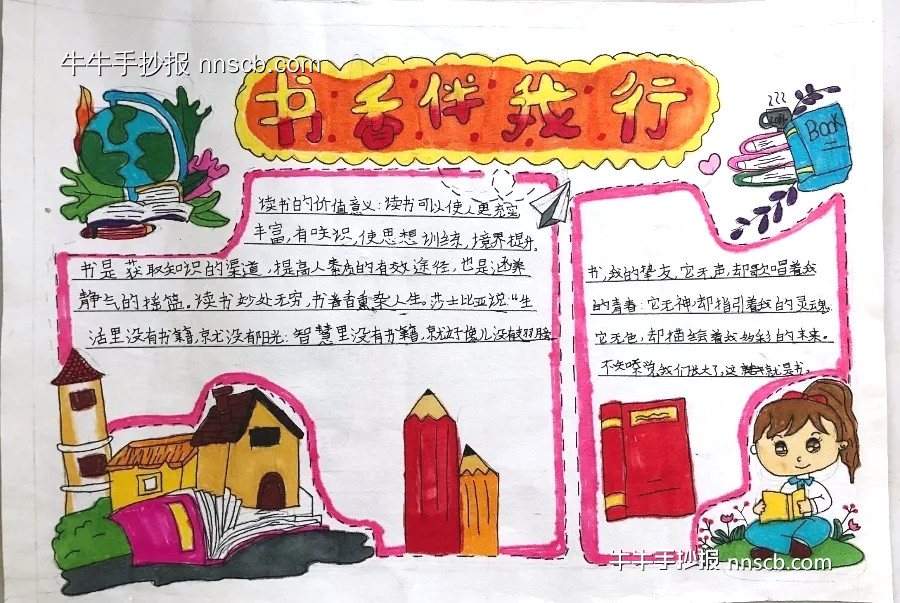 牛牛手抄报 nnscb.com
书香伴我行
Book
读书的价值意义：读书可以使人更充实
丰富，有咲识，使思想训练，境界提升。
书是获取知识的渠道，提高人素质的有效途径，也是涵养
静气的摇篮。读书妙处无穷，书香熏染人生。莎士比亚说："生
活里没有书籍，就尤没有阳光：智慧里没有书籍，就好像儿没有翅膀
书，我的挚友，它无声，却歌唱着我
的青春：它无神，却指引着我的灵魂，
它无色，却描绘着我妙彩的未来。
不知嗓觉，我们长大了，这就是书。
牛牛手抄报 nnscb.com